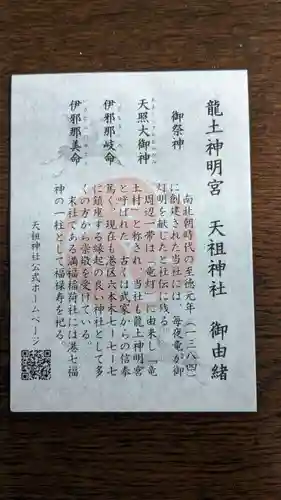 龍土神明宮 天祖神社 御由緒
御祭神
天照大御神
伊邪那岐命
伊邪那美命
南北朝時代の至徳元年（一三八四）
に創建された当社には、毎夜竜が御
灯明を献じたと社伝に残る。
周辺一帯は「竜灯」に由来し「竜
土村」と称され、当社も龍土神明宮
と呼ばれた。古くは武家からの信奉
篤く、現在も港区六本木七-七-七
に鎮座する縁起の良い神社として多
くの方から崇敬を受けている。
末社である満福稲荷社には港七福
神の一柱として福禄寿を祀る。
天祖神社公式ホームページ